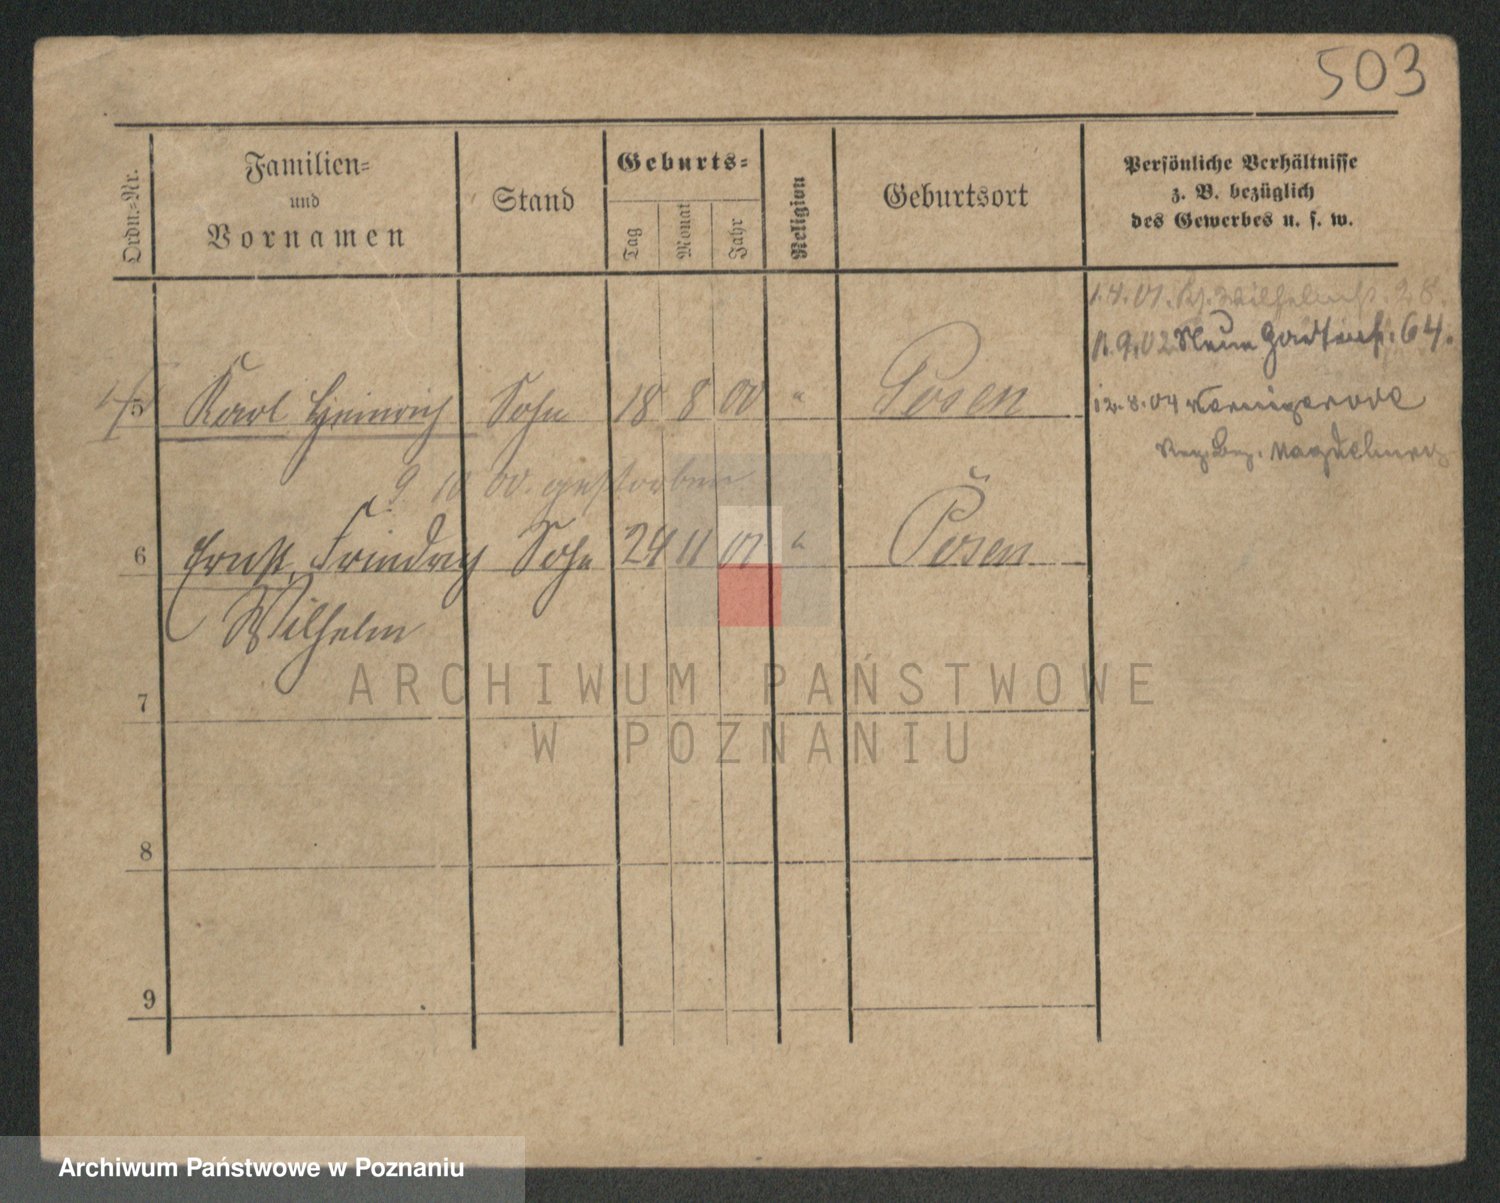 503
Ordn.-Nr.
Familien-
und
Vornamen
Stand
Geburts-
Tag
Monat
Jahr
Religion
Geburtsort
Persönliche Verhältnisse
z. B. bezüglich
des Gewerbes u. s. w.
1.4.01. Wilhelmst. 28.
9.02 Neue Gartenst. 64.
5 Karl Heinrich Sohn 18 8 00 " Posen
12.8.04 Wernigerode
Reg. Bez. Magdeburg
9 10 00. gestorben
6 Ernst Friedrich Sohn 24 11 01 " Posen
Wilhelm
7
8
9
ARCHIWUM PAŃSTWOWE
W POZNANIU
Archiwum Państwowe w Poznaniu